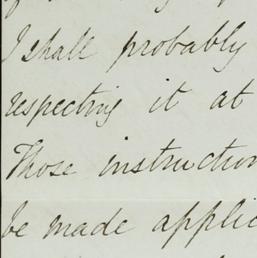 I shall probably
respecting it at
Those instruction
be made applic